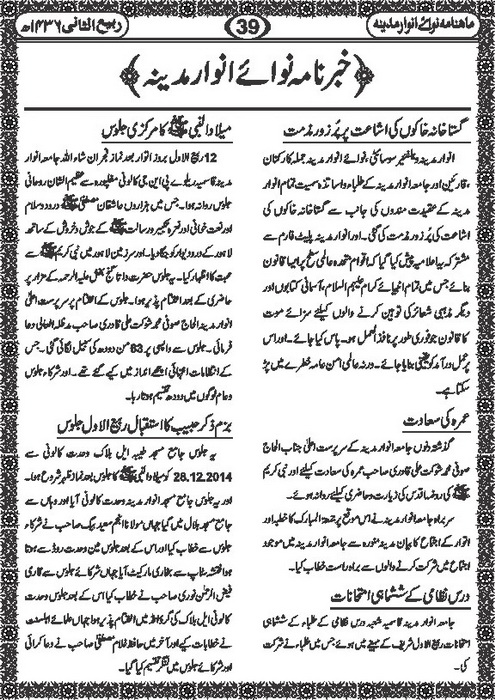 ماہنامہ نوائے انوار مدینہ
39
ربیع الثانی ۱۴۳۶ھ
خبر نامہ نوائے انوار مدینہ
گستاخانہ خاکوں کی اشاعت پر پُر زور مذمت
انوار مدینہ ویلفیئر سوسائٹی، نوائے انوار مدینہ جملہ کارکنان
، قارئین اور جامعہ انوار مدینہ کے طلباء و اساتذہ سمیت تمام انوار
مدینہ کے عقیدت مندوں کی جانب سے گستاخانہ خاکوں کی
اشاعت کی پُر زور مذمت کی گئی۔ اور انوار مدینہ پلیٹ فارم سے
مشترکہ یہ اعلامیہ پیش کیا گیا کہ اقوام متحدہ عالمی سطح پر ایسا قانون
بنائے جس میں تمام انبیائے کرام علیہم السلام، آسمانی کتابوں اور
دیگر مذہبی شعائر کی توہین کرنے والوں کیلئے سزائے موت
کا قانون جو فوری طور پر نافذ العمل ہو۔ پاس کیا جائے۔ اور اس
پر عمل درآمد کو یقینی بنایا جائے۔ ورنہ عالمی امن عامہ خطرے میں پڑ
سکتا ہے۔
عمرہ کی سعادت
گذشتہ دنوں جامعہ انوار مدینہ کے سرپرست اعلیٰ جناب الحاج
صوفی محمد شوکت علی قادری صاحب عمرہ کی سعادت کیلئے اور نبی کریم
ﷺ کی روضہ اقدس کی زیارت و حاضری کیلئے روانہ ہوئے۔
سربراہ جامعہ انوار مدینہ نے اس موقع پر جمعۃ المبارک کا خطبہ اور
اتوار کے اجتماع کا بیان مدینہ منورہ سے جامعہ انوار مدینہ میں موجود
اجتماع میں شرکت کرنے والوں سے براہ راست خطاب کیا۔
درس نظامی کے ششماہی امتحانات
جامعہ انوار مدینہ شعبہ درس نظامی کے طلباء کے ششماہی
امتحانات ربیع الاول شریف کے مہینے میں ہوئے جس میں طلباء نے شرکت
کی۔
میلاد النبی ﷺ کا مرکزی جلوس
12 ربیع الاول بروز اتوار بعد نماز فجر ان شاء اللہ جامعہ انوار
مدینہ قاسمیہ ریلوے پی این جی کالونی مغلپورہ سے عظیم الشان روحانی
جلوس روانہ ہوا۔ جس میں ہزاروں عاشقان مصطفیٰ ﷺ درود و سلام
اور نعت خوانی اور نعرہ تکبیر و رسالت ﷺ کے جوش و خروش کے ساتھ
لاہور کے در و دیوار کو جگا دیا۔ اور سرزمین لاہور میں نبی کریم ﷺ سے
محبت کا اظہار کیا۔ یہ جلوس حضرت داتا گنج بخش علیہ الرحمہ کے مزار پر
حاضری کے بعد اختتام پذیر ہوا۔ جلوس کے اختتام پر سرپرست اعلیٰ
مدینہ الحاج صوفی محمد شوکت علی قادری صاحب مدظلہ العالی دعا
فرمائی۔ جلوس سے واپسی پر 63 من دودھ کی سبیل لگائی گئی۔ جس
کے انتظامات انتہائی اچھے انداز میں کیے گئے تھے۔ اور شرکاء جلوس
و عام لوگوں میں دودھ تقسیم ہوتا رہا۔
بزم ذکر حبیب کا استقبال ربیع الاول جلوس
یہ جلوس جامع مسجد طیبہ ایل بلاک وحدت کالونی سے
28.12.2014 کو میلاد النبی ﷺ کا جلوس بعد نماز ظہر شروع ہوا۔
اور یہ جلوس جامع مسجد انوار مدینہ وحدت کالونی آیا اور وہاں سے
جامع مسجد بلال میں گیا جہاں مولانا انجم سعید بیگ صاحب نے شرکاء
جلوس سے خطاب کیا اور اس کے بعد جلوس مین وحدت روڈ سے ہوتا
ہوا نقشہ سٹاپ سے بخاری مارکیٹ آیا جہاں شرکائے جلوس سے قاری
فیض الرحمٰن نوری صاحب نے خطاب کیا اس کے بعد جلوس وحدت
کالونی ایل بلاک کی گراؤنڈ میں اختتام پذیر ہوا جہاں علمائے اہلسنت
نے خطابات کیے اور آخر میں حافظ غلام مصطفیٰ صاحب نے دعا کرائی
اور شرکائے جلوس میں لنگر تقسیم کیا گیا۔